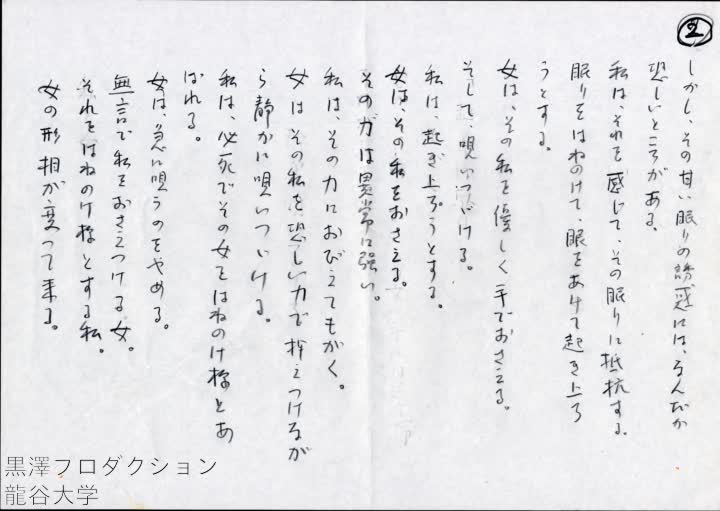 ②
しかし、その甘い眠りの誘惑には、なんだか
恐しいところがある。
私は、それを感じて、その眠りに抵抗する。
眠りをはねのけて、眼をあけて起き上ろ
うとする。
女は、その私を優しく手でおさえる。
そして、唄いつづける。
私は、起き上ろうとする。
女は、その私をおさえる。
その力は異常に強い。
私は、その力におびえてもがく。
女はその私を恐しい力で抑えつけるが
ら静かに唄いつづける。
私は、必死でその女をはねのけ様とあ
ばれる。
女は、急に唄うのをやめる。
無言で私をおさえつける女。
それをはねのけ様とする私。
女の形相が変って来る。
黒澤プロダクション
龍谷大学